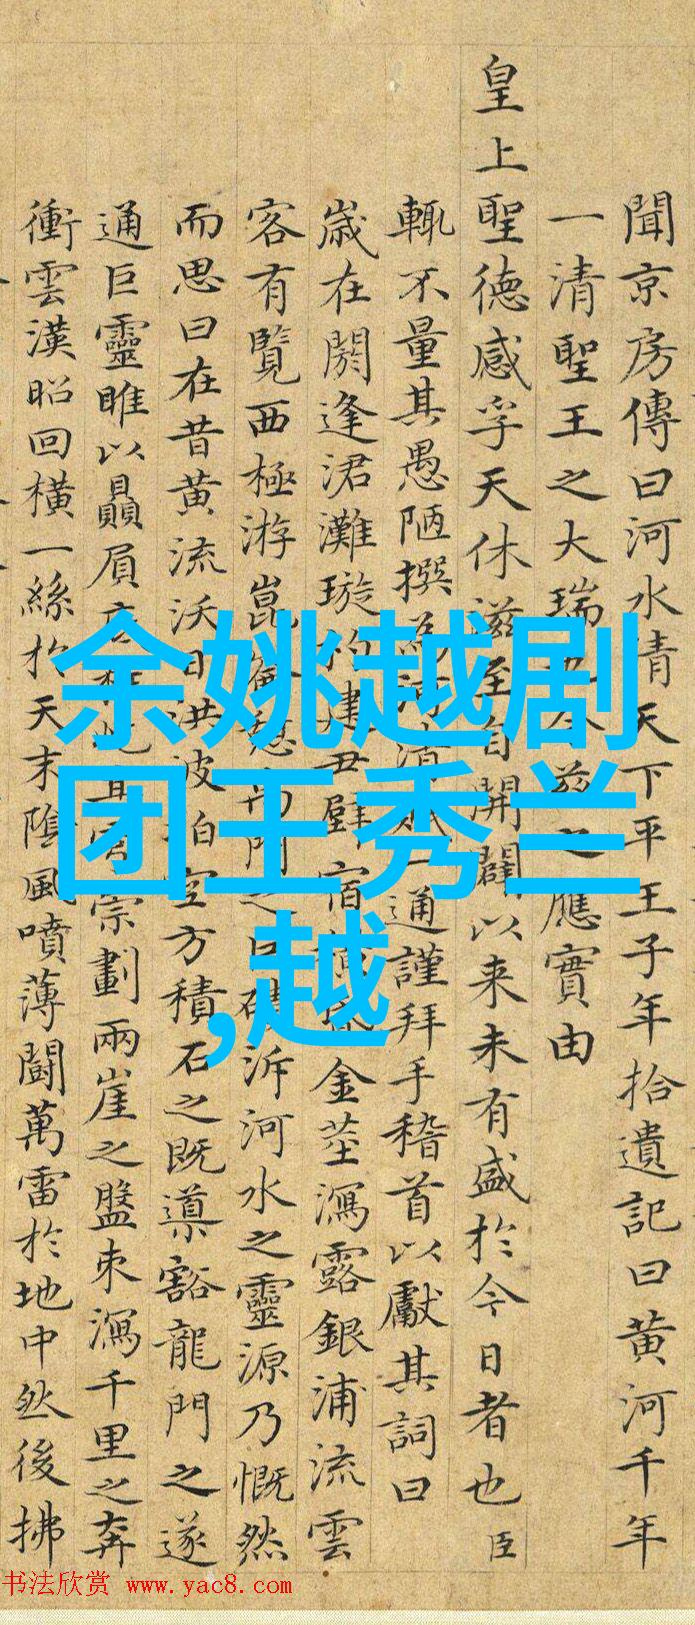 聞京房傳曰河水清天下平王子年拾遺記曰黄河千年
一清聖王之大瑞也今茲之應實由
皇上聖德感孚天休滋至自開闢以来未有盛於今日者也臣
輒不量其愚陋撰為河清賦一通謹拜手稽首以獻其詞曰
歲在閼逢涒灘璇杓建丑壁宿金莖瀉露銀浦流雲
客有覽西極游崑崙門之沂河水之靈源乃慨然
而思曰在昔黄流沃日洪波拍空方積石之既導豁龍門之遂
通巨靈睢以贔屓宗劃兩崖之盤束瀉千里之奔
衝雲漢昭回橫一絲於天末陰風噴薄鬪萬雷於地中然後拂
余姚越剧
团王秀兰
,越
书法欣赏 www.yac8.com